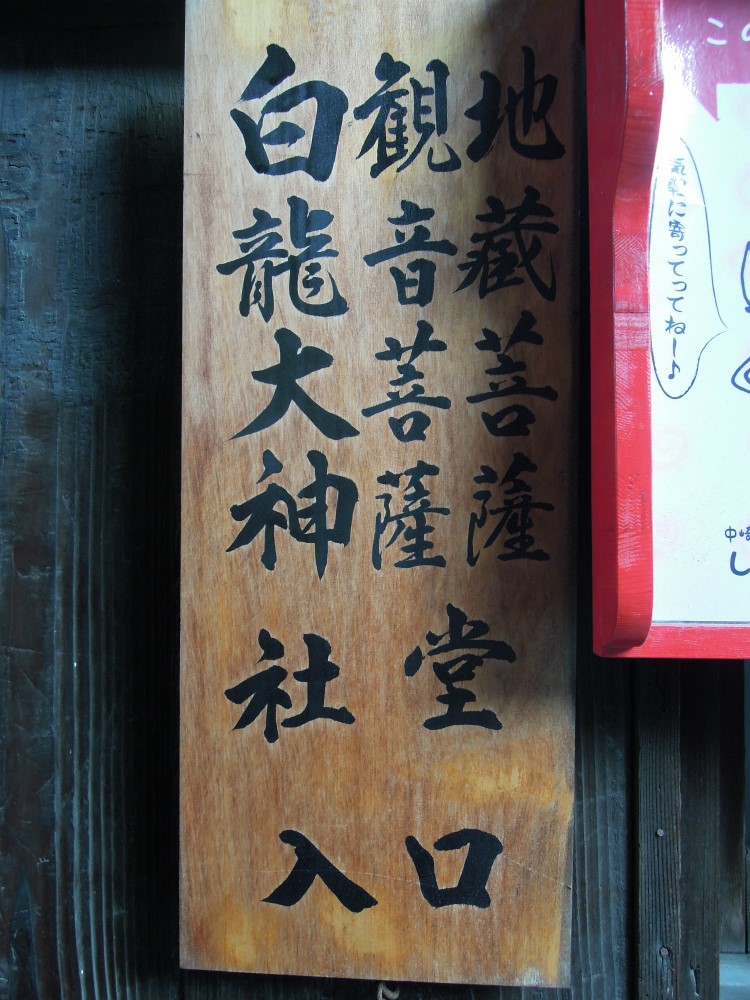 地藏菩薩
観音菩薩
堂
白龍大神社
入口
気軽に寄ってってねー♪
この
中崎
し